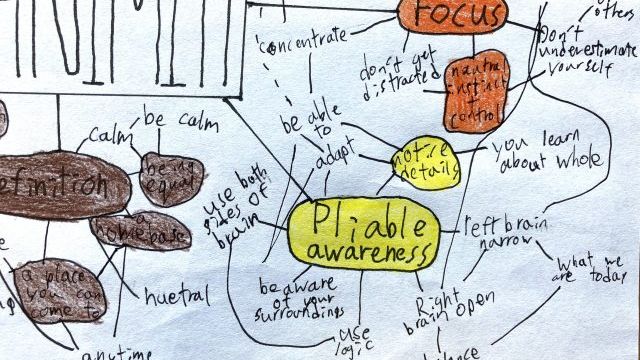 FOCUS
others
concentrate
don't get
distracted
Don't
underestimate
yourself
neutral
instinct
+
control
be able
to
adapt
notice
details
you learn
about whole
calm
be calm
being
equal
efinition
a
homebase
a place
you can
come to
huetral
anytime
use both
sites of
brain
Pliable
awareness
left brain
narrow
be aware
of your
surroundings
use
logic
Right
brain open
what we
are today